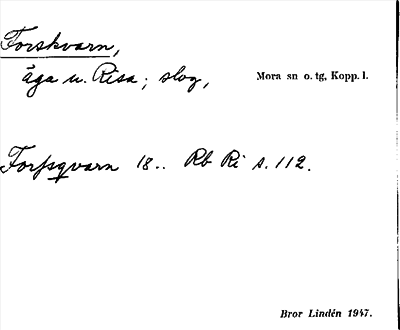 Forskvarn,
äga u. Risa; slog, Mora sn o. tg, Kopp. l.
Forsqvarn 18.. Rb Ri s. 112.
Bror Lindén 1947.